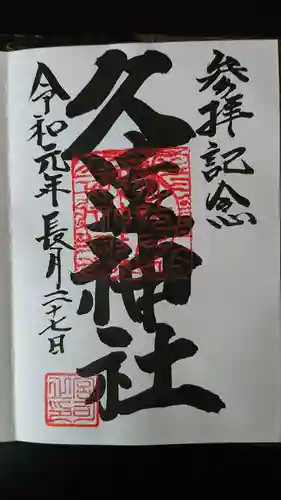 参拝記念
久 神社
令和元年 長月二十七日
宮司之印